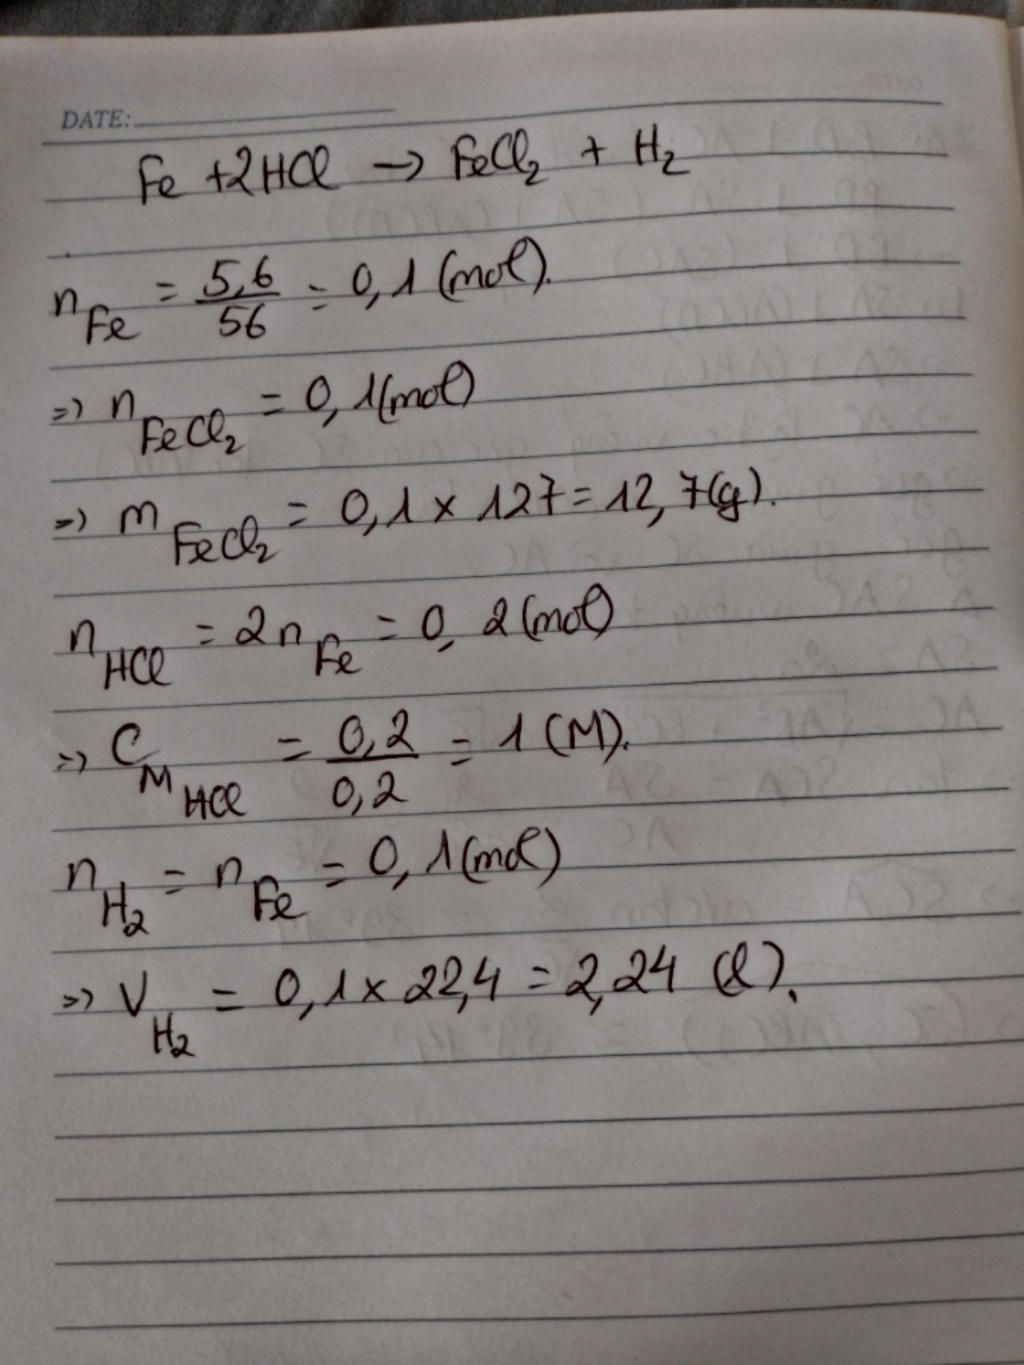 DATE:
Fe + 2HCl → FeCl₂ + H₂
n_Fe = 5,6/56 = 0,1 (mol).
=> n_FeCl₂ = 0,1 (mol)
=> m_FeCl₂ = 0,1 × 127 = 12,7 (g).
n_HCl = 2n_Fe = 0,2 (mol)
=> C_M_HCl = 0,2/0,2 = 1 (M).
n_H₂ = n_Fe = 0,1 (mol)
=> V_H₂ = 0,1 × 22,4 = 2,24 (l).